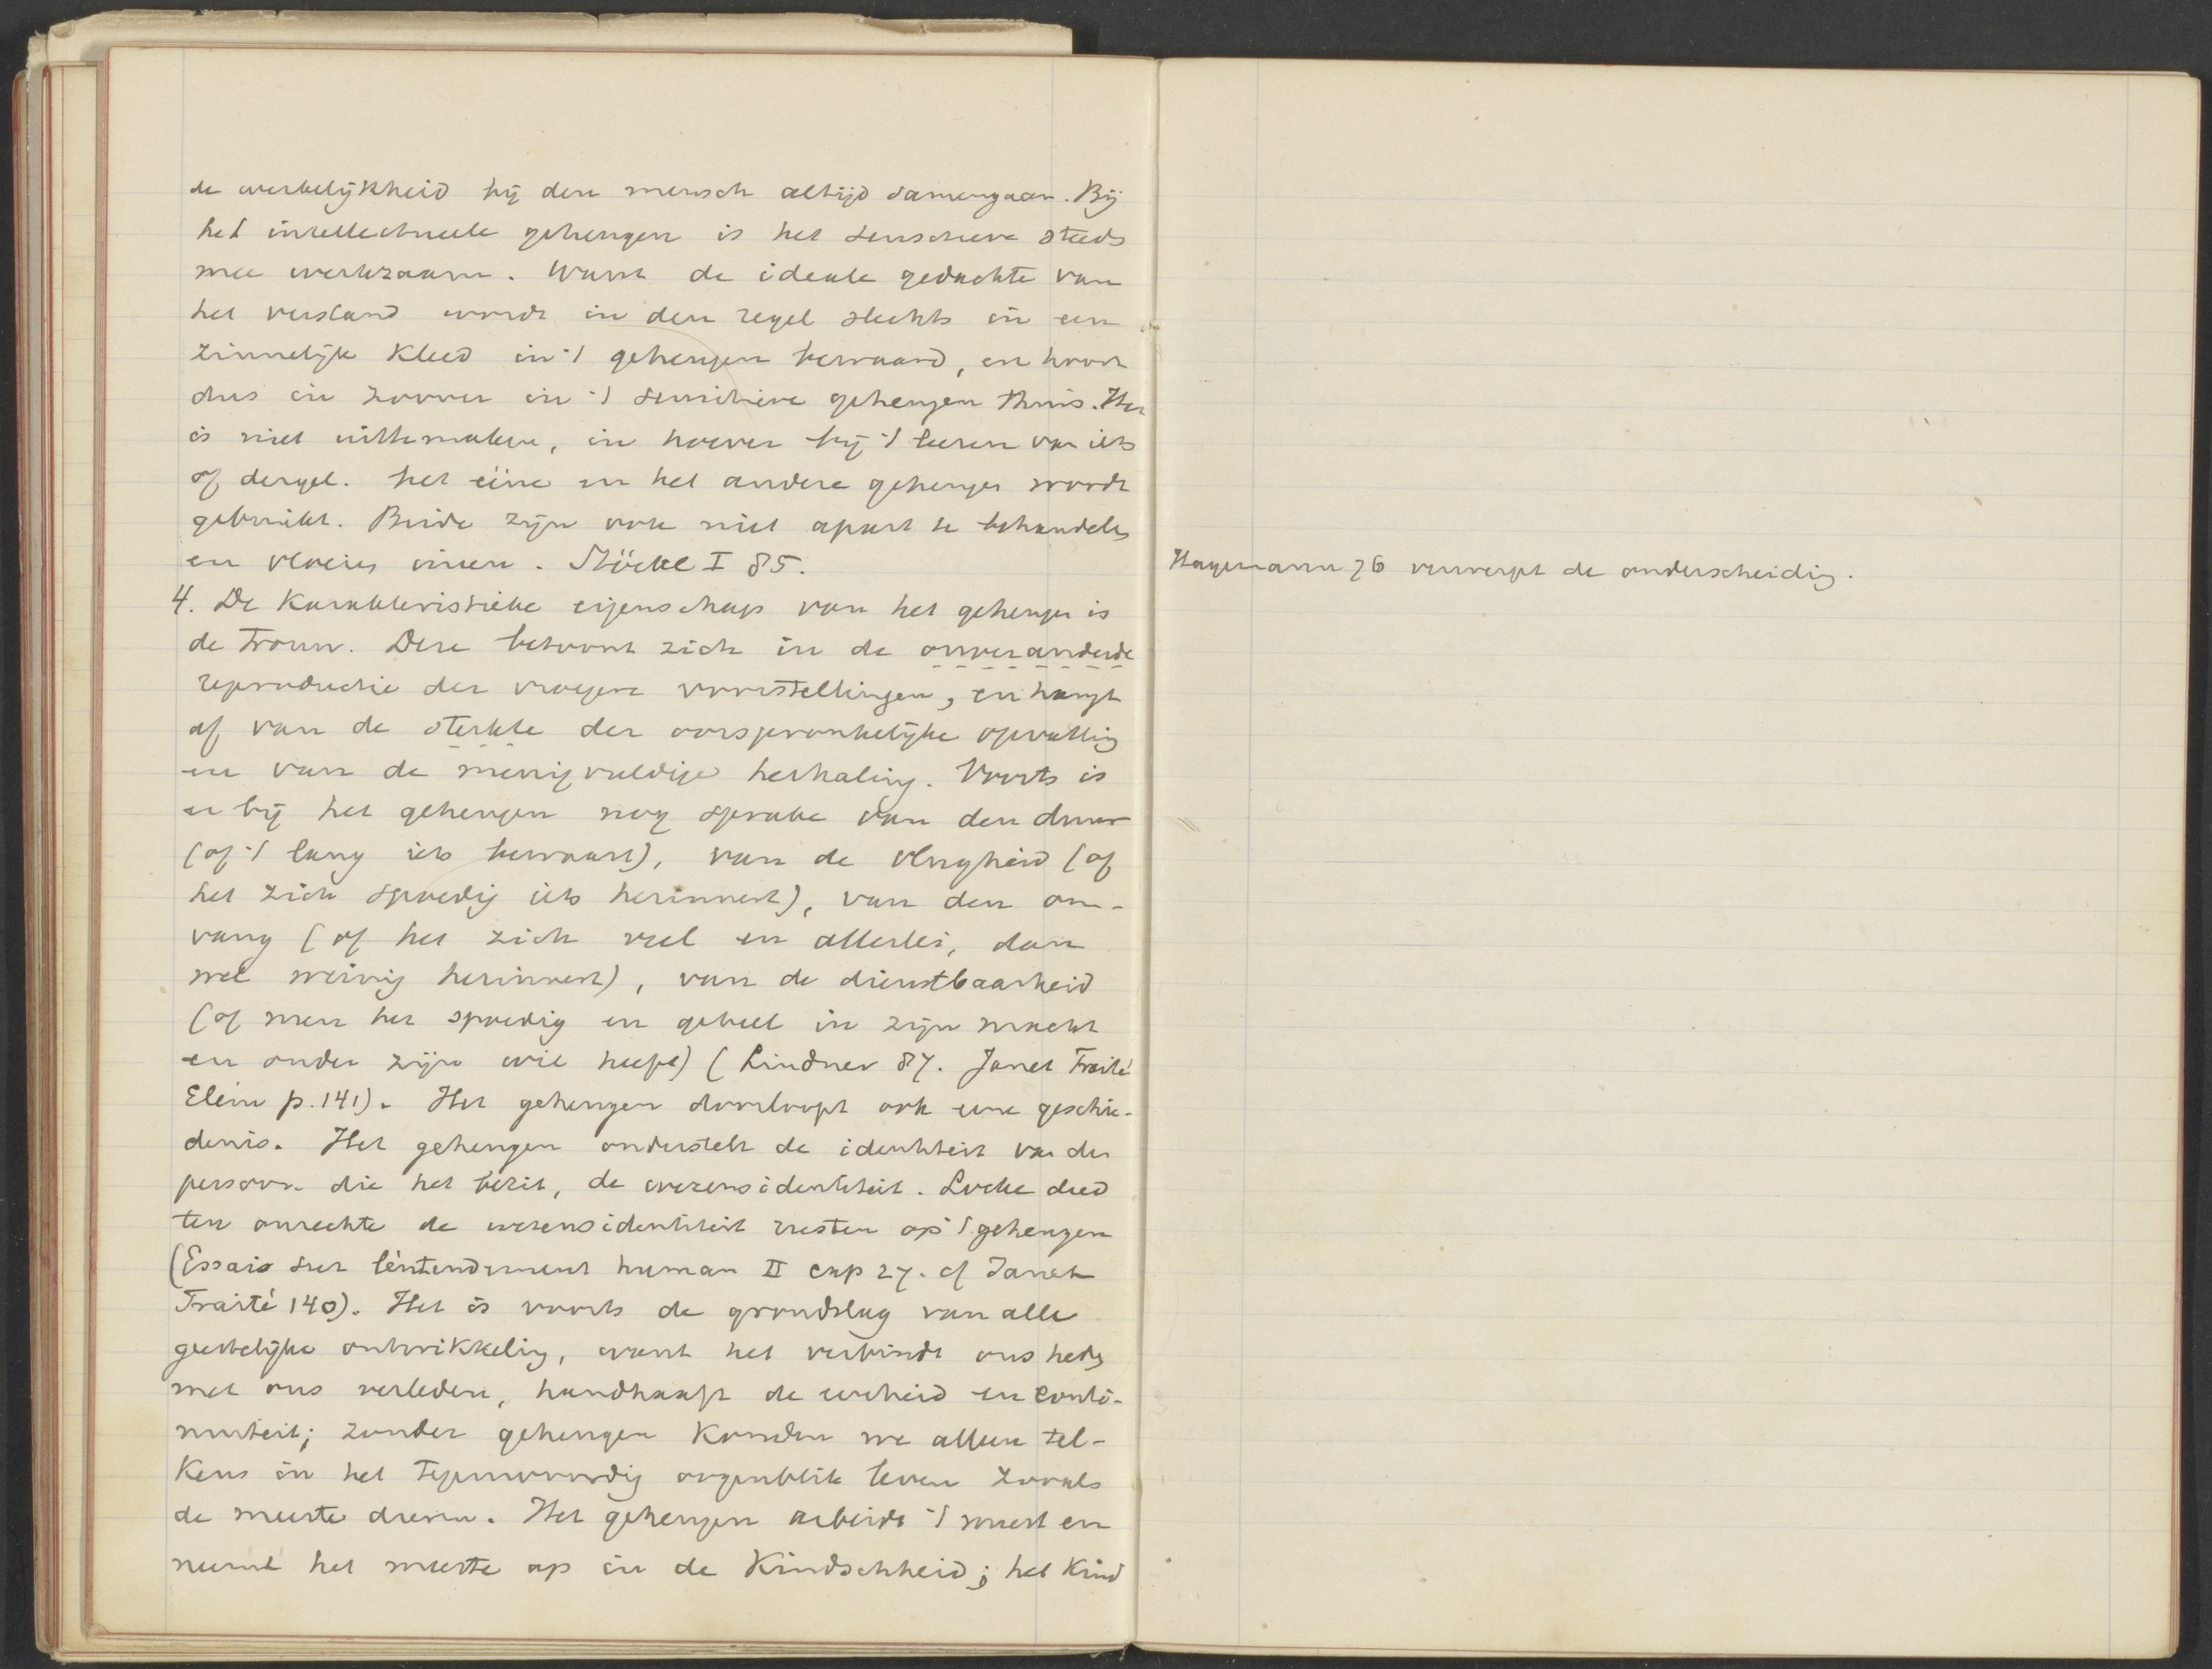 de werkelijkheid bij den mensch altijd samengaan. Bij
het intellectueele geheugen is het sensitieve steeds
mee werkzaam. Want de ideale gedachte van
het verstand wordt in den regel slechts in een
zinnelijk kleed in 't geheugen bewaard, en hoort
dus in zoover in 't sensitieve geheugen thuis. Het
is niet uittemaken, in hoever bij 't leeren van iets
of dergel. het eene en het andere geheugen wordt
gebruikt. Beide zijn ook niet apart te behandelen
en vloeien ineen. Stöckl I 85.
Hagemann 76 verwerpt de onderscheiding.
4. De karakteristieke eigenschap van het geheugen is
de trouw. Deze betoont zich in de onveranderde
reproductie der vroegere voorstellingen, en hangt
af van de sterkte der oorspronkelijke opvatting
en van de menigvuldige herhaling. Voorts is
er bij het geheugen nog sprake van den duur
(of 't lang iets bewaart), van de vlugheid (of
het zich spoedig iets herinnert), van den om-
vang (of het zich veel en allerlei, dan
wel weinig herinnert), van de dienstbaarheid
(of men het spoedig en geheel in zijn macht
en onder zijn wil heeft) (Lindner 87. Janet Traité
Elém p. 141). Het geheugen doorloopt ook eene geschie-
denis. Het geheugen onderstelt de identiteit van den
persoon die het bezit, de wezensidentiteit. Locke deed
ten onrechte de wezensidentiteit rusten op 't geheugen
(Essais sur l'éntendement human II cap 27. cf Janet
Traité 140). Het is voorts de grondslag van alle
geestelijke ontwikkeling, want het verbindt ons heden
met ons verleden, handhaaft de eenheid en conti-
nuiteit; zonder geheugen konden we alleen tel-
kens in het tegenwoordig oogenblik leven zooals
de meeste dieren. Het geheugen arbeidt 't meest en
neemt het meeste op in de kindschheid; het kind